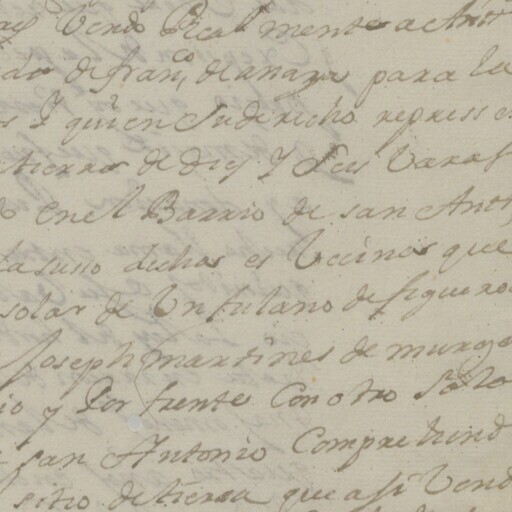 Vendo Realmente a Ant
de fran,co de anaya para la
s Y quien Su derecho repress e
tierra de diez Y Seis Varas
en el Barrio de san Ant
la suso dicha es Vecina que
solar de Un fulano de figuero
Joseph martines de murg
io y Por frente Con otro Sola
san Antonio Comprehend
sitio de tierra que asi Vend